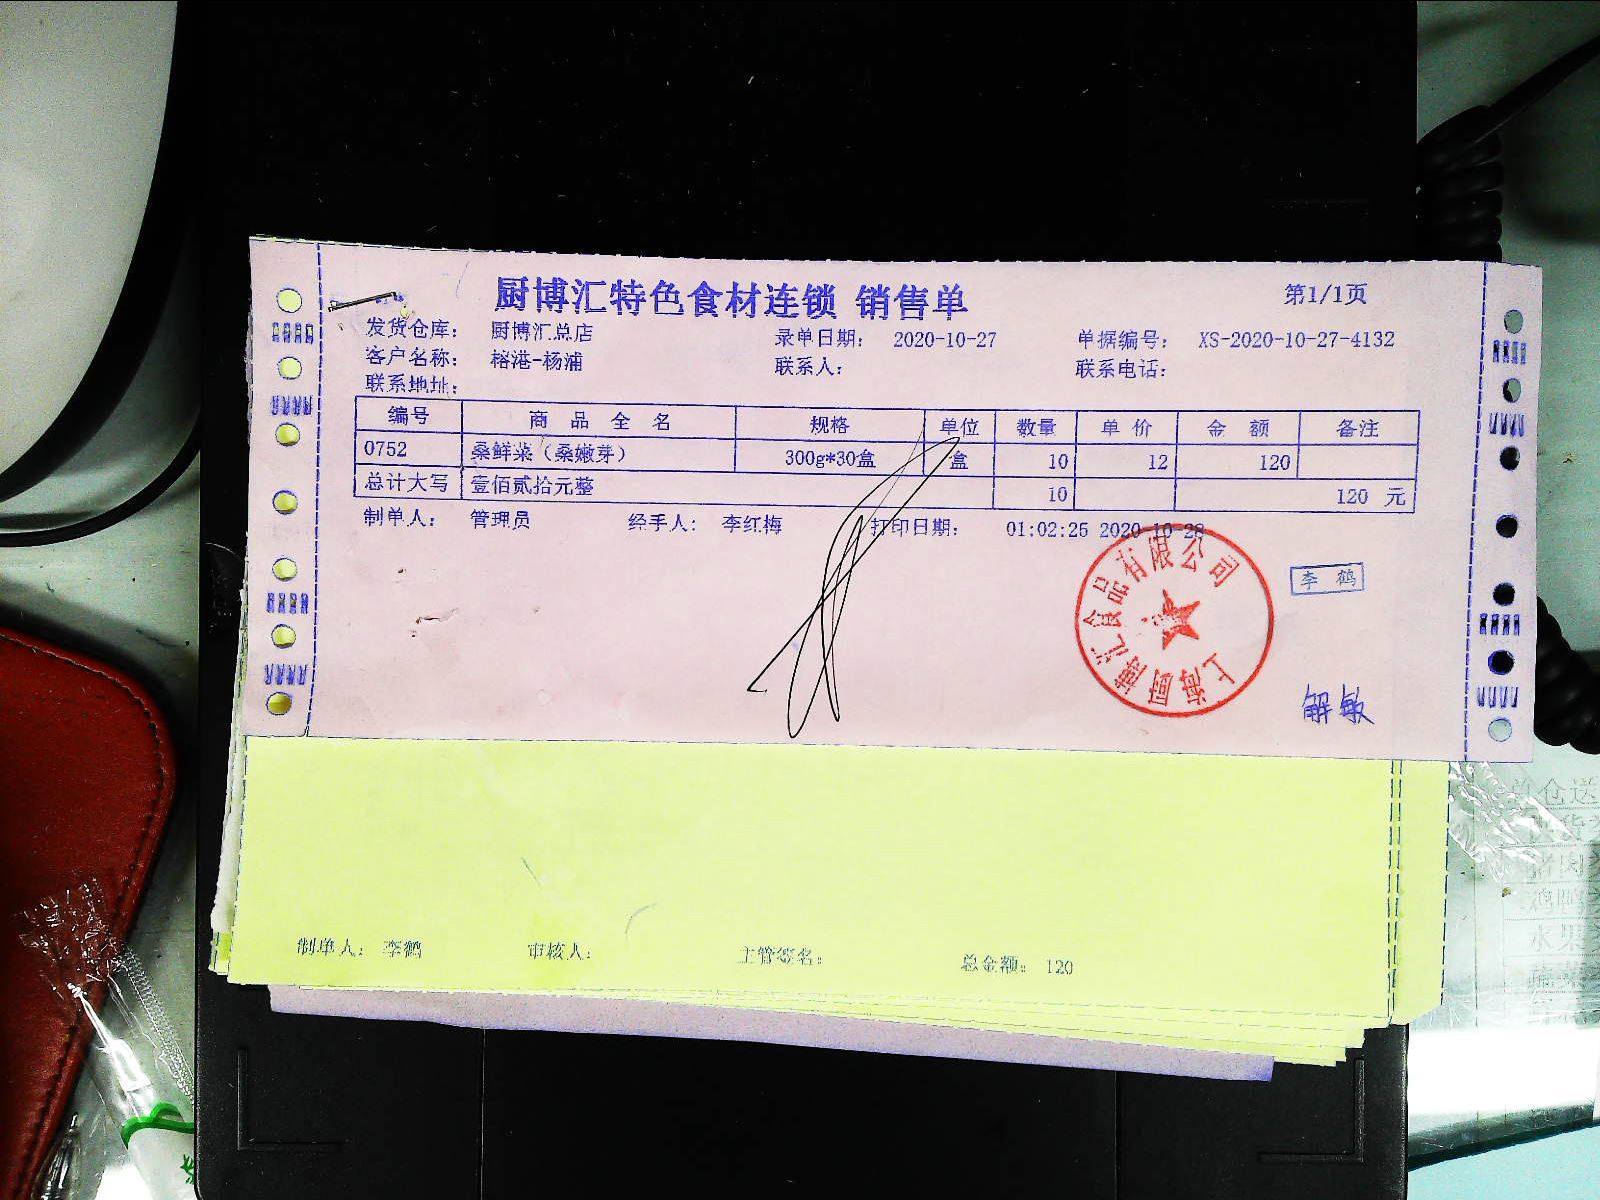 厨博汇特色食材连锁 销售单
第1/1页
发货仓库： 厨博汇总店 录单日期： 2020-10-27 单据编号： XS-2020-10-27-4132
客户名称： 榕港-杨浦 联系人： 联系电话：
联系地址：
编号 商品全名 规格 单位 数量 单价 金额 备注
0752 桑鲜菜（桑嫩芽） 300g*30盒 盒 10 12 120
总计大写 壹佰贰拾元整 10 120 元
制单人： 管理员 经手人： 李红梅 打印日期： 01:02:25 2020-10-28
上海厨博汇食品有限公司
李鹤
解敏
制单人： 李鹤 审核人： 主管签名： 总金额： 120